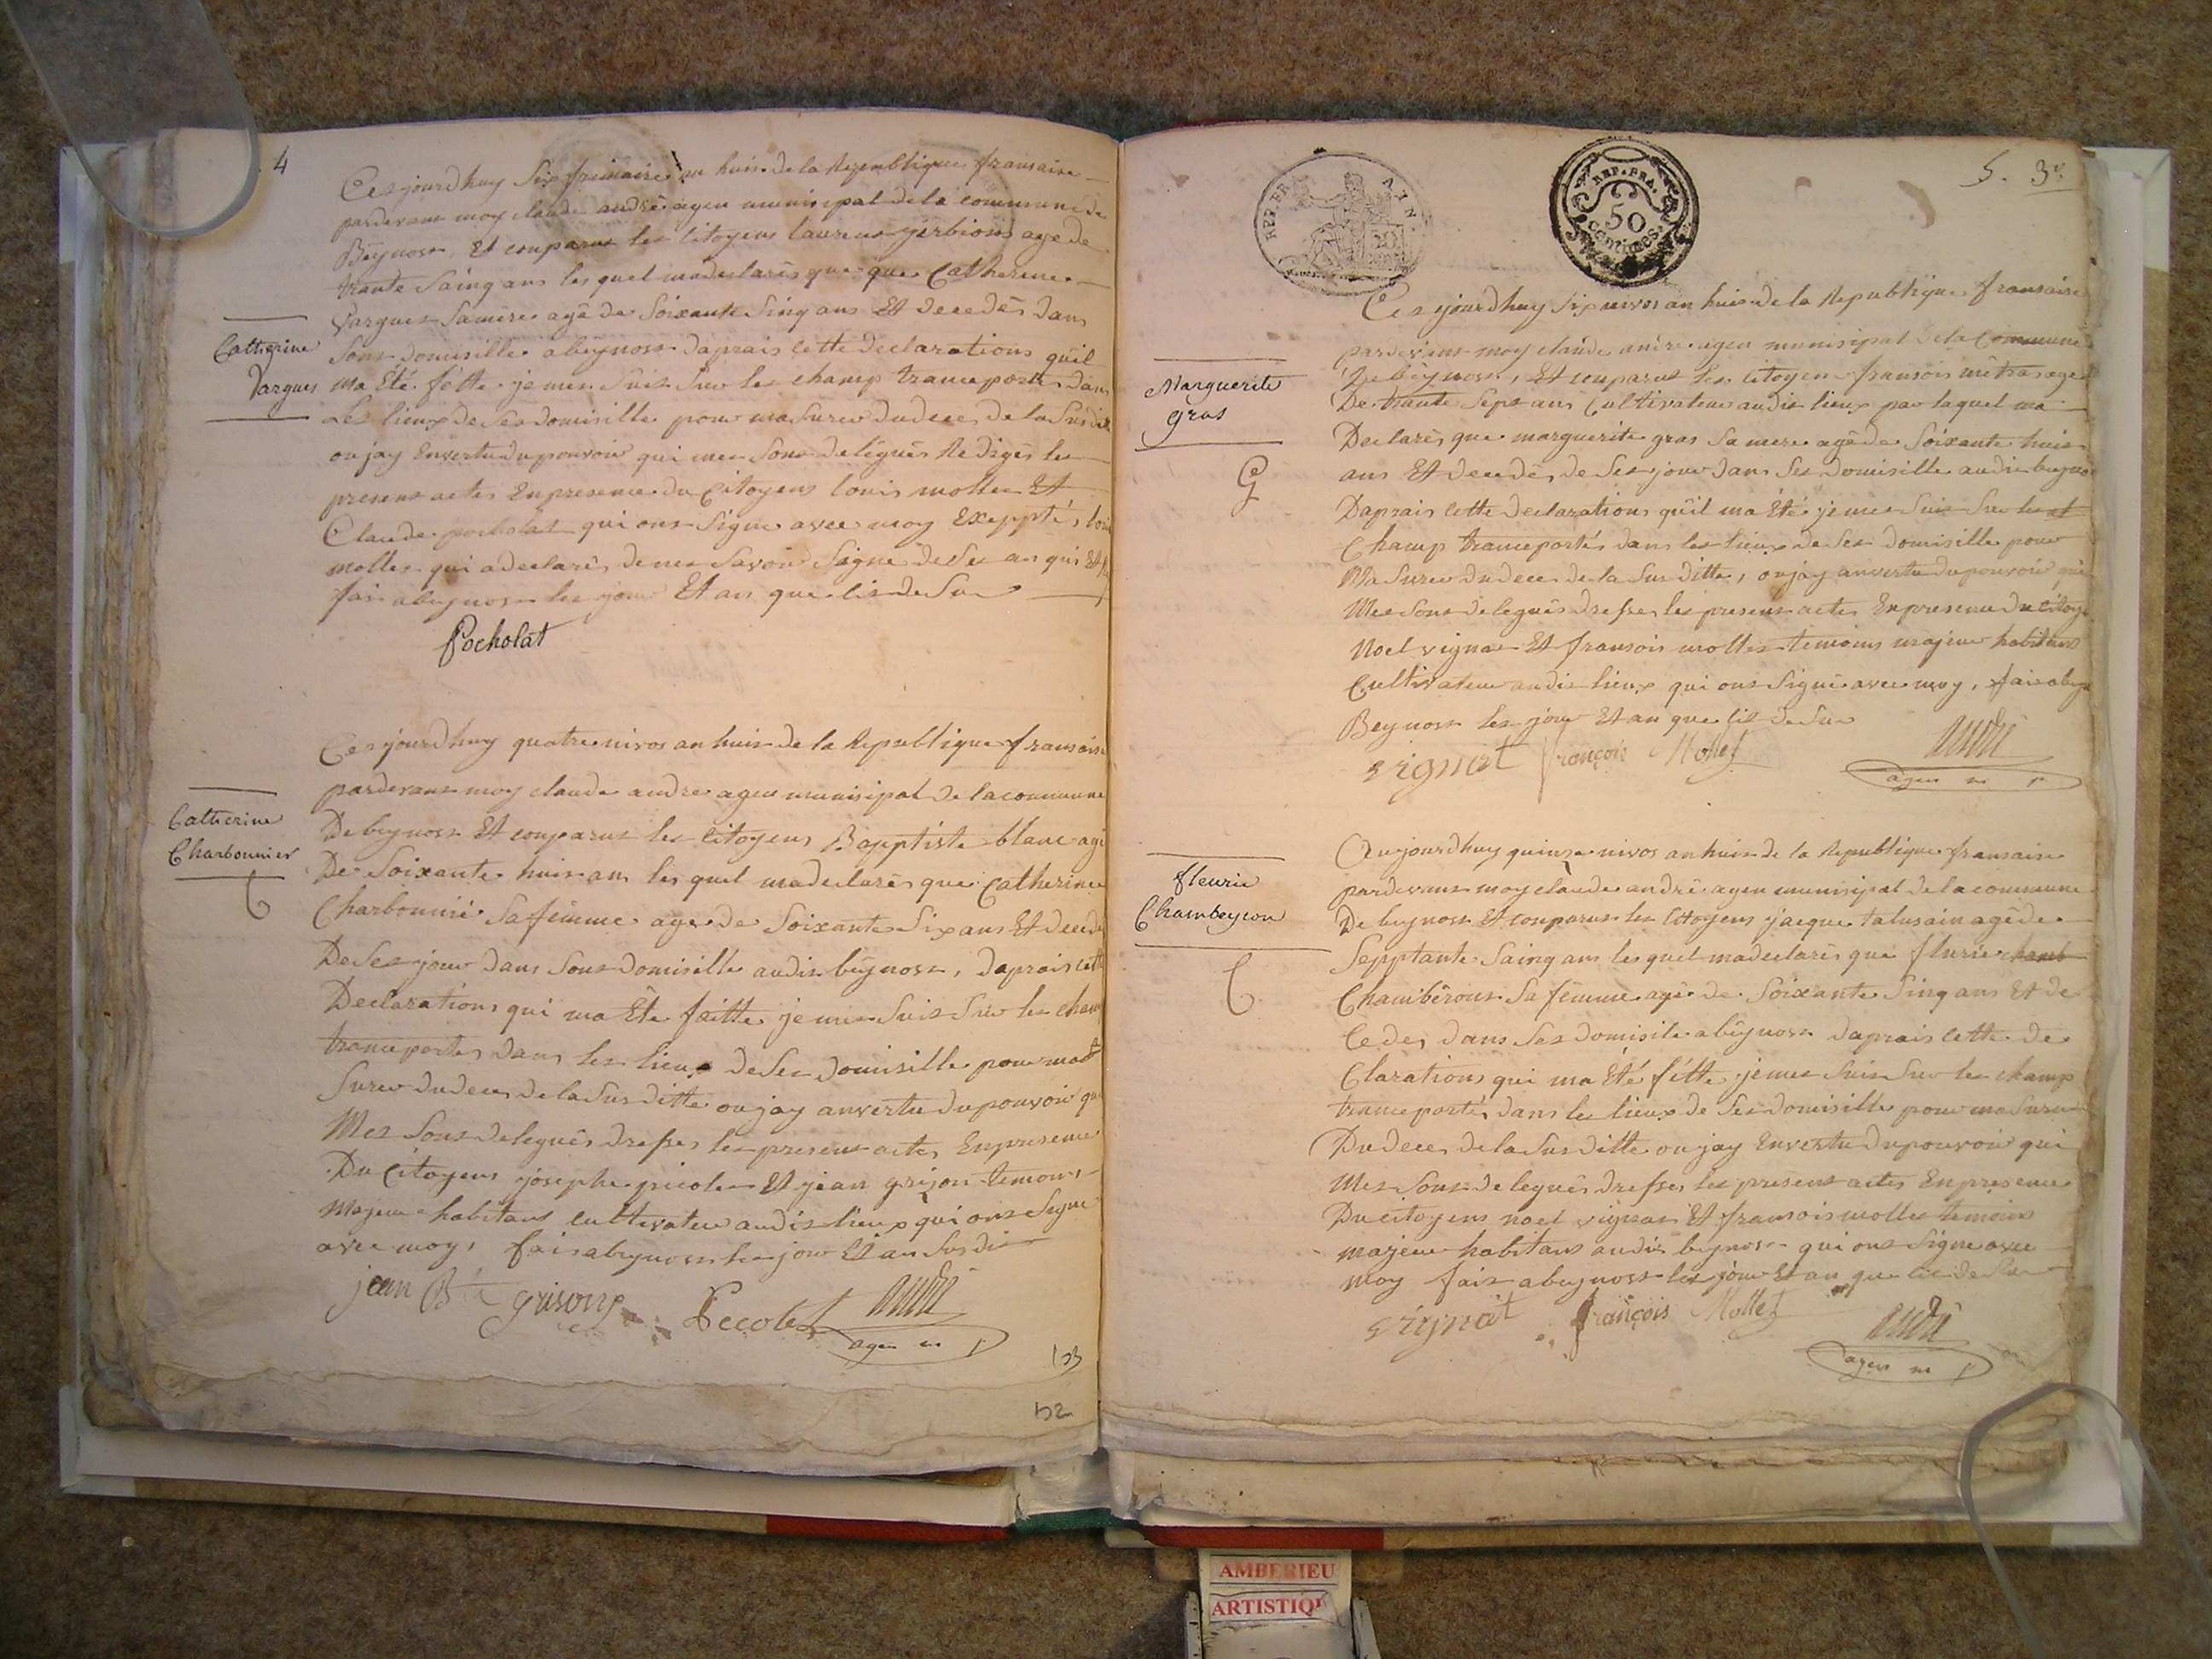 4
Cesjourdhuy Six frimaire an huis de la Republique fransaise
pardevans moy claude andré agen munisipal de la commune de
Beynost, Et conparus les Citoyens laurens gerbions agé de
trante Saing ans les quel madeclarés que que Catherine
Vargues Samere agé de Soixante Sinq ans Et decedés dans
Sons domisille abeynost daprais cette declarations quil
ma Eté fétte je mes Suis Sur les champ tranceportés dans
Les lieux de Ses domisille pour masurer dudeces de la Susditte
oujay Envertu dupouvoir qui mes Sons delégués Redigés les
presens actes Enpresence du Citoyens louis molles Et
Claude pocholat qui ons Signe avec moy Exepptés loui
molles qui adeclarés denes Savoir Signé de Se anquis Et
fais abeynost les jour Et an que lis de Sur
Catherine
Vargues
Pocholat
Cesjourdhuy quatre nivos an huis de la Republique fransaise
pardevans moy claude andre agen munisipal de lacommune
De beynost Et conparus les Citoyens Bapptiste blanc agé
De Soixante huis ans les quel madeclarés que Catherine
Charbonniré Safémme age de Soixante Six ans Et decedé
DeSes jour dans Sons domisille audis beynost, daprais cette
Declarations qui ma Eté faitte je mes Suis Sur les champ
tranceportés dans les lieux deSes domisille pour mas
Surer dudeces de laSus ditte oujay anvertu dupouvoir qui
Mes Sons delegués dresses les presens actes Enpresence
Du Citoyens josephe picoles Et jean grison temoins
Majeur habitans cultivateur audis lieux qui ons Signe
avec moy, fais abeynost les jour Et an Susdis
Catherine
Charbonnier
C
jean Bte grison Pecolet andré
agen m p
133
132
REP. FRA. 50 centimes
REP. FR. AIN
5. 3e
Cesjourdhuy Six nivos an huis de la Republique fransaise
pardevans moy claude andre agen munisipal de la Commune
De beynost, Et conparus les Citoyens fransois métras agé
De trante Sept ans Cultivateur audis lieux par laquel ma
Declarés que marguerite gras Sa mere agé de Soixante huis
ans Et decedés de Ses jour dans Ses domisille audis beynos
Daprais cette declarations quil ma Eté jemes Suis Sur les
Champ tranceportés dans les lieux de Ses domisille pour
MaSurer dudeces de la Sus ditte, oujay anvertu dupouvoir qui
Mes Sons delegués dresses les presens actes Enpresence du Citoye
Noel vignas Et fransois molles temoins majeur habitans
Cultivateur audis lieux qui ons Signé avec moy, fais abey
Beynost les jour Et an que lis de Sur
Marguerite
gras
G
vignat François Mollet andré
agen m p
Aujourdhuy quinze nivos an huis de la Republique fransaise
pardevans moy claude andré agen munisipal de lacommune
De beynost Et conparus les Citoyens jacque talusain agé de
Sepptante Saing ans lesquel madeclarés que flurie chamb
Chambérons Sa fémme agé de Soixante Sinq ans Et de
Cedes dans Ses domisile abeynost daprais cette de
Clarations qui ma Eté fétte jemes Suis Sur les champ
tranceportés dans les lieux de Ses domisille pour maSurer
Dudeces delaSus ditte oujay Envertu dupouvoir qui
Mes Sons delegués dresses les présens actes Enpresence
Ducitoyens noel vignas Et fransois molles temoins
majeur habitans audis beynost qui ons Signe avec
moy fais abeynost les jour Et an que lis de Sur
fleurie
Chambeyron
C
vignat François Mollet andré
agen m p
AMBERIEU
ARTISTIQU